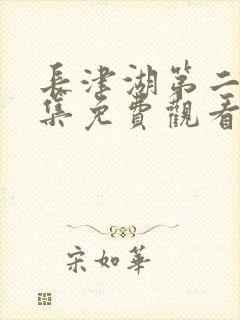 長津湖第二
集免費觀看
宋如華